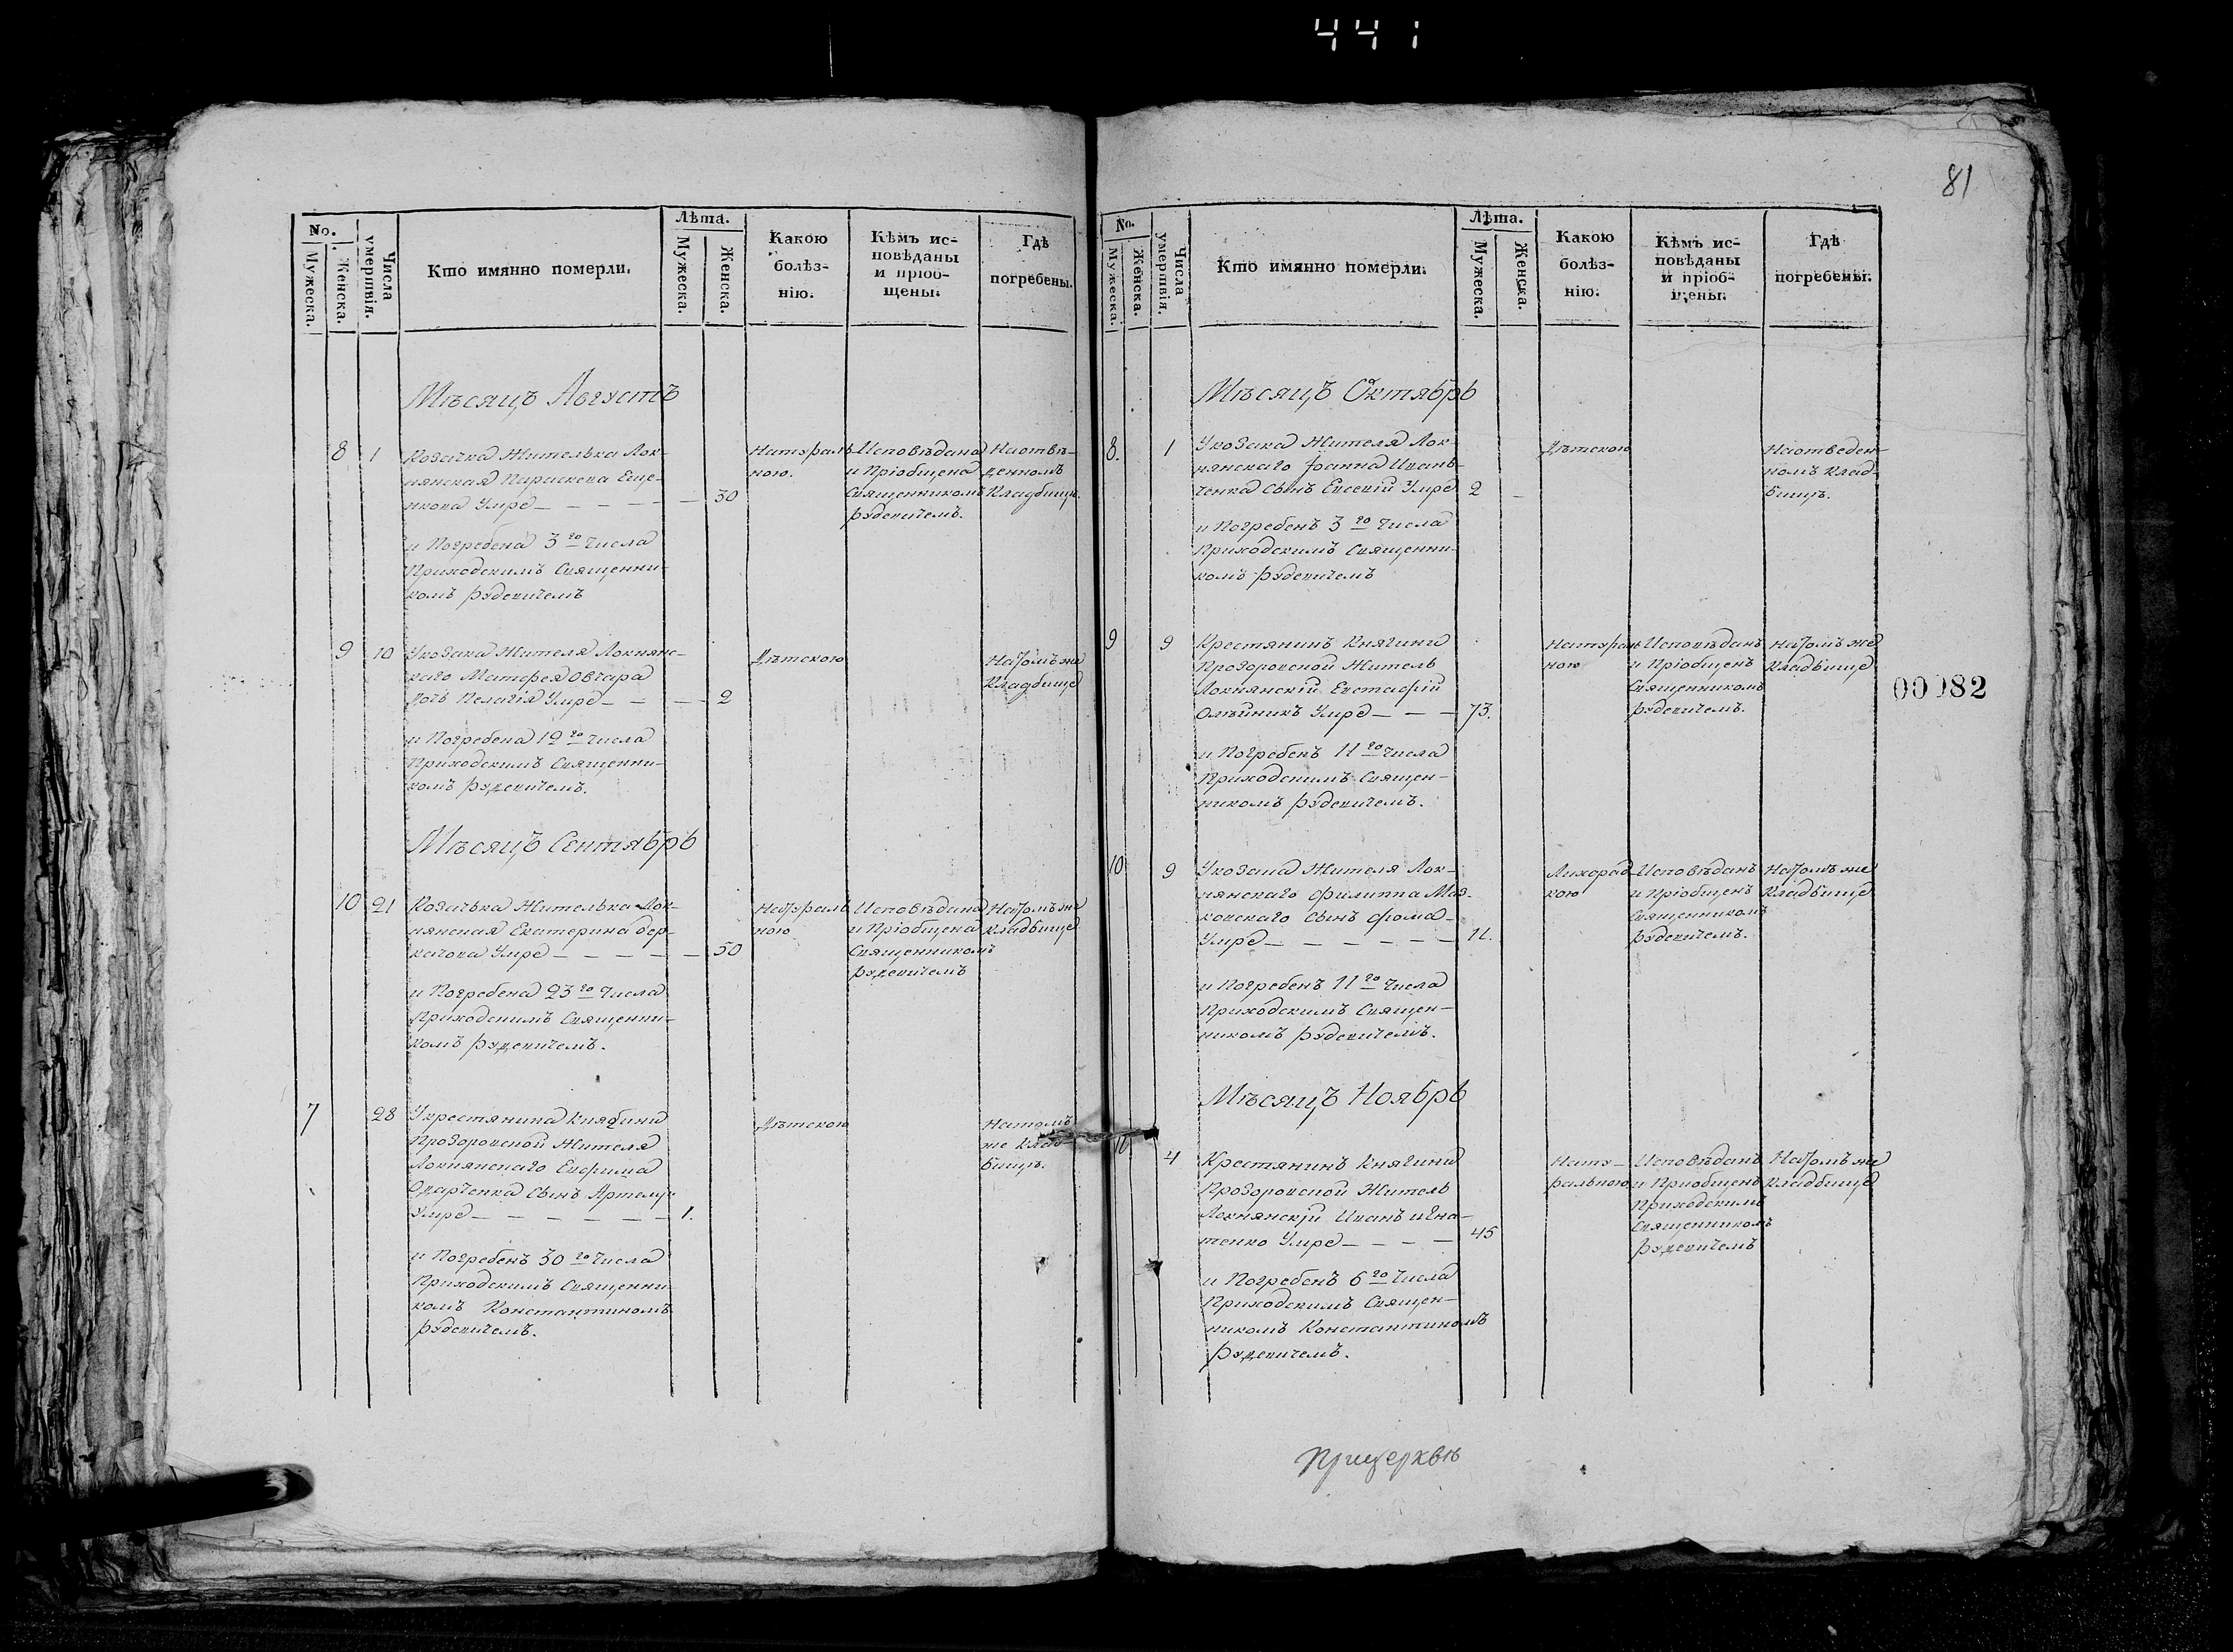 441
81
No.
Мужеска.
Женска.
Числа умертвія.
Кто имянно померли.
Лѣта.
Мужеска.
Женска.
Какою
болѣз-
нію.
Кѣмъ ис-
повѣданы
и пріоб-
щены.
Гдѣ
погребены.
Мѣсяцъ Августъ
8 1 Козачка Жителька Лок-
нянская Параскева Еще-
нкова Умре — — — — — 30
и Погребена 3го Числа
Приходскимъ Священни-
комъ Рудевичемъ
Натураль-
ною.
Исповѣдана
и Пріобщена
Священникомъ
Рудевичемъ.
На отвѣ-
денномъ
Кладбищѣ.
9 10 У козака Жителя Локнянс-
каго Матфея Овчара
дочь Пелагія Умре — — — 2
и Погребена 12го Числа
Приходскимъ Священни-
комъ Рудевичемъ.
Дѣтскою
На томъ же
Кладбище
Мѣсяцъ Сентябрь
10 21 Козачька Жителька Лок-
нянская Екатерина
Умре — — — — — 50
и Погребена 23го Числа
Приходскимъ Священни-
комъ Рудевичемъ.
Натураль
ною
Исповѣдана
и Пріобщена
Священникомъ
Рудевичемъ
На томъ же
кладбище
7 28 У крестянина Княгини
Прозоровской Жителя
Локнянскаго Евфима
Одарченка сынъ Артемъ
Умре — — — — — — 1.
и Погребенъ 30го Числа
Приходскимъ Священни-
комъ Константиномъ
Рудевичемъ.
Дѣтскою
На томъ
же Клад-
бищѣ.
No.
Мужеска.
Женска.
Числа умертвія.
Кто имянно померли.
Лѣта.
Мужеска.
Женска.
Какою
болѣз-
нію.
Кѣмъ ис-
повѣданы
и пріоб-
щены.
Гдѣ
погребены.
Мѣсяцъ Октябрь
8. 1 У козака Жителя Лок-
нянскаго Іоанна Иван-
ченка сынъ Евсевій Умре 2 —
и Погребенъ 3го Числа
Приходскимъ Священни-
комъ Рудевичемъ
Дѣтскою
На отведен-
номъ Клад-
бищѣ.
9 9 Крестянинъ Княгини
Прозоровской Житель
Локнянскій Евстафій
Олѣйникъ Умре — — — 73.
и Погребенъ 11го Числа
Приходскимъ Священ-
никомъ Рудевичемъ.
Натураль
ною
Исповѣданъ
и Пріобщенъ
Священникомъ
Рудевичемъ.
На томъ же
Кладбище
00082
10 9 У козака Жителя Лок-
нянскаго Филиппа
сынъ Фома
Умре — — — — — — 11.
и Погребенъ 11го Числа
Приходскимъ Священ-
никомъ Рудевичемъ.
Лихорад-
кою
Исповѣданъ
и Пріобщенъ
Священникомъ
Рудевичемъ.
На томъ же
Кладбище
Мѣсяцъ Ноябрь
4 Крестянинъ Княгини
Прозоровской Житель
Локнянскій Иванъ Игна-
тенко Умре — — — — 45
и Погребенъ 6го Числа
Приходскимъ Священ-
никомъ Константиномъ
Рудевичемъ.
Нату-
ральною
Исповѣданъ
и Пріобщенъ
Приходскимъ
Священникомъ
Рудевичемъ
На томъ же
Кладбище
При церквѣ